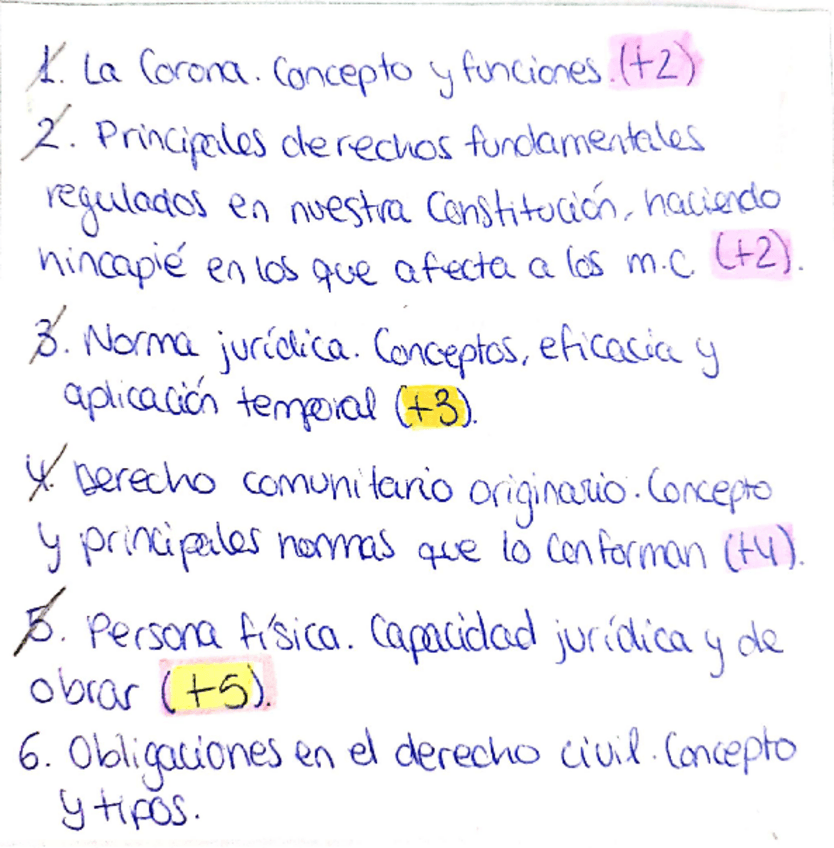 1. La Corona. Concepto y funciones. (+2)
2. Principales derechos fundamentales
regulados en nuestra Constitución, haciendo
hincapié en los que afecta a los m.c. (+2).
3. Norma jurídica. Conceptos, eficacia y
aplicación temporal (+3).
4. Derecho comunitario originario. Concepto
y principales normas que lo conforman (+4).
5. Persona física. Capacidad jurídica y de
obrar (+5).
6. Obligaciones en el derecho civil. Concepto
y tipos.